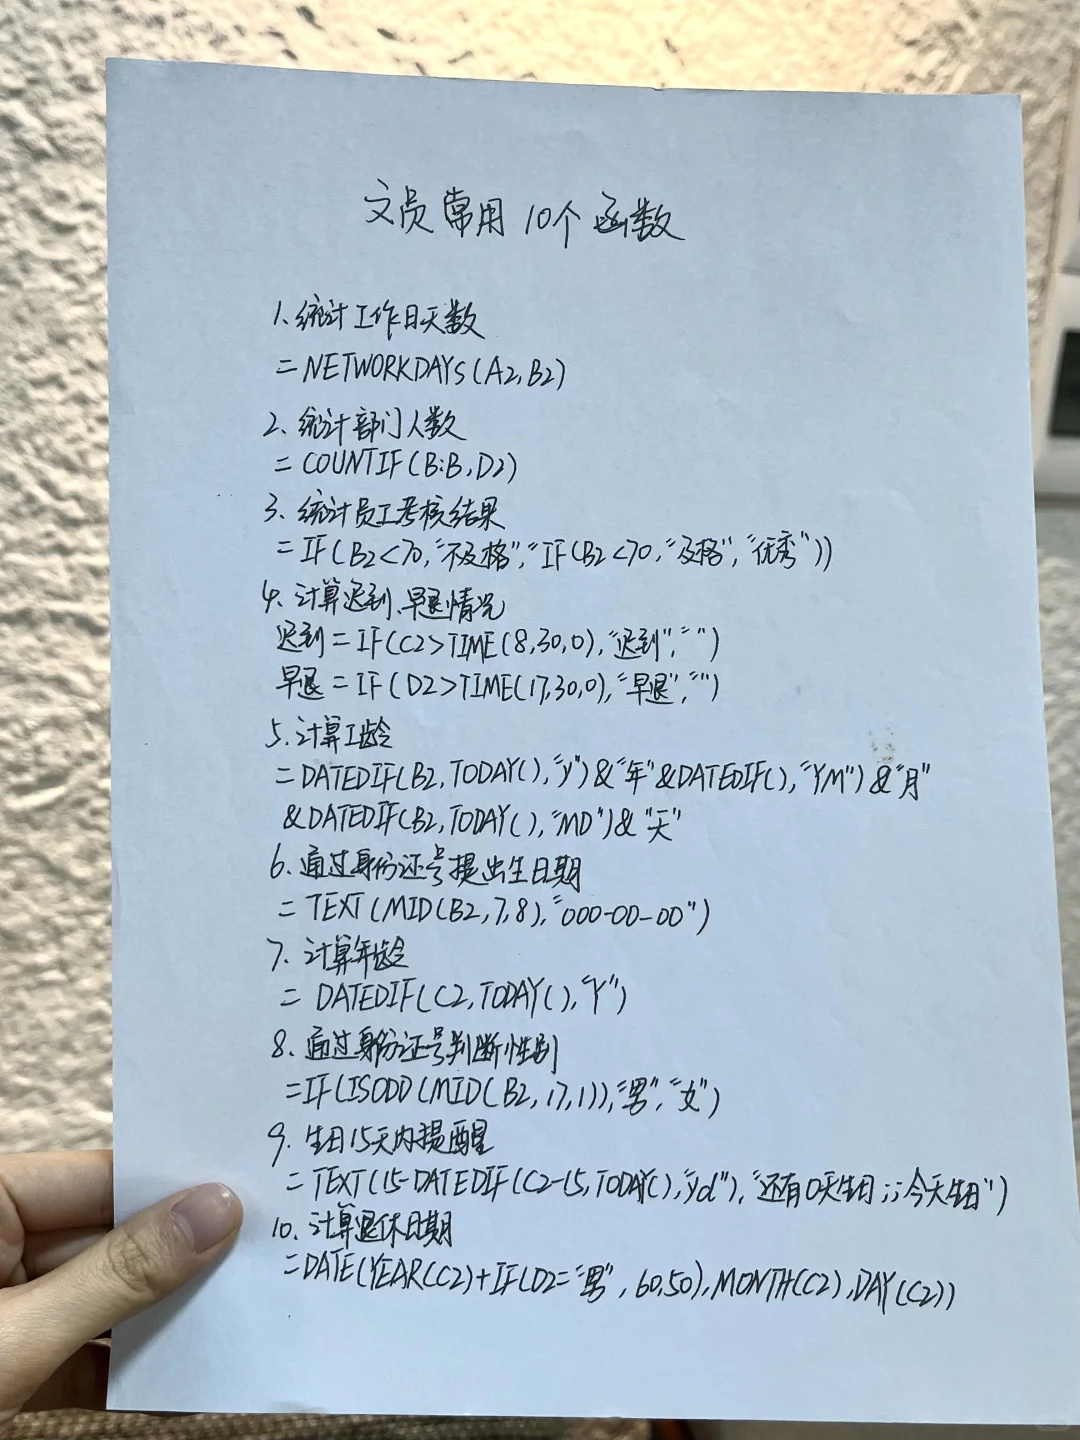 文员常用10个函数
1、统计工作日天数
=NETWORKDAYS(A2,B2)
2、统计部门人数
=COUNTIF(B:B,D2)
3、统计员工考核结果
=IF(B2<70,"不及格","IF(B2<70,"及格","优秀"))
4、计算迟到、早退情况
迟到=IF(C2>TIME(8,30,0),"迟到","")
早退=IF(D2>TIME(17,30,0),"早退","")
5、计算工龄
=DATEDIF(B2,TODAY(),"y")&"年"&DATEDIF(),"YM")&"月"
&DATEDIF(B2,TODAY(),"MD")&"天"
6、通过身份证号提出生日期
=TEXT(MID(B2,7,8),"000-00-00")
7、计算年龄
=DATEDIF(C2,TODAY(),"Y")
8、通过身份证号判断性别
=IF(ISODD(MID(B2,17,1)),"男","女")
9、生日15天内提醒
=TEXT(15-DATEDIF(C2-15,TODAY(),"yd"),"还有0天生日;;今天生日")
10、计算退休日期
=DATE(YEAR(C2)+IF(D2="男",60,50),MONTH(C2),DAY(C2))